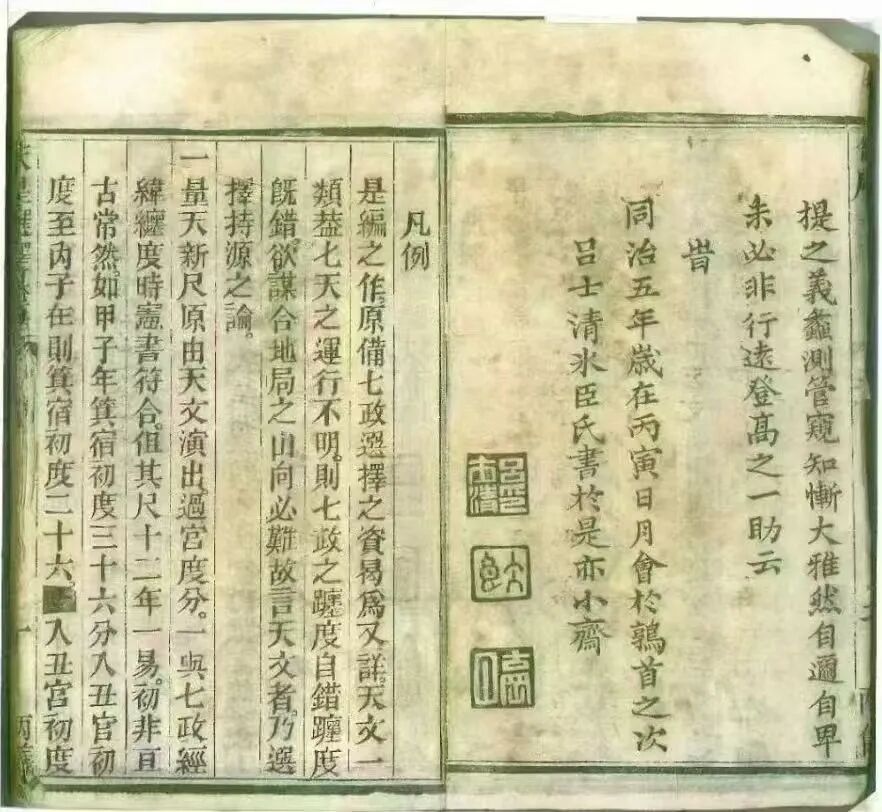 提之義蠡測管窺知慚大雅然自邇自卑
未必非行遠登高之一助云
旹
同治五年歲在丙寅日月會於鶉首之次
呂士清氷臣氏書於是亦小齋
凡例
是編之作。原備七政選擇之資曷為又詳。天文一
類葢七天之運行不明。則七政之躔度自錯躔度
旣錯。欲謀合地局之山向必難故言天文者。乃選
擇持源之論。
一量天新尺原由天文演出。過宮度分。一與七政經
緯纏度時憲書符合。但其尺十二年一易。初非亘
古常然。如甲子年箕宿初度三十六分入丑宮初
度至丙子年則箕宿初度二十六入丑宮初度
一